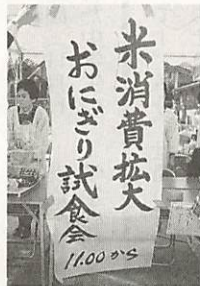 米消費拡大
おにぎり試食会
11.00から